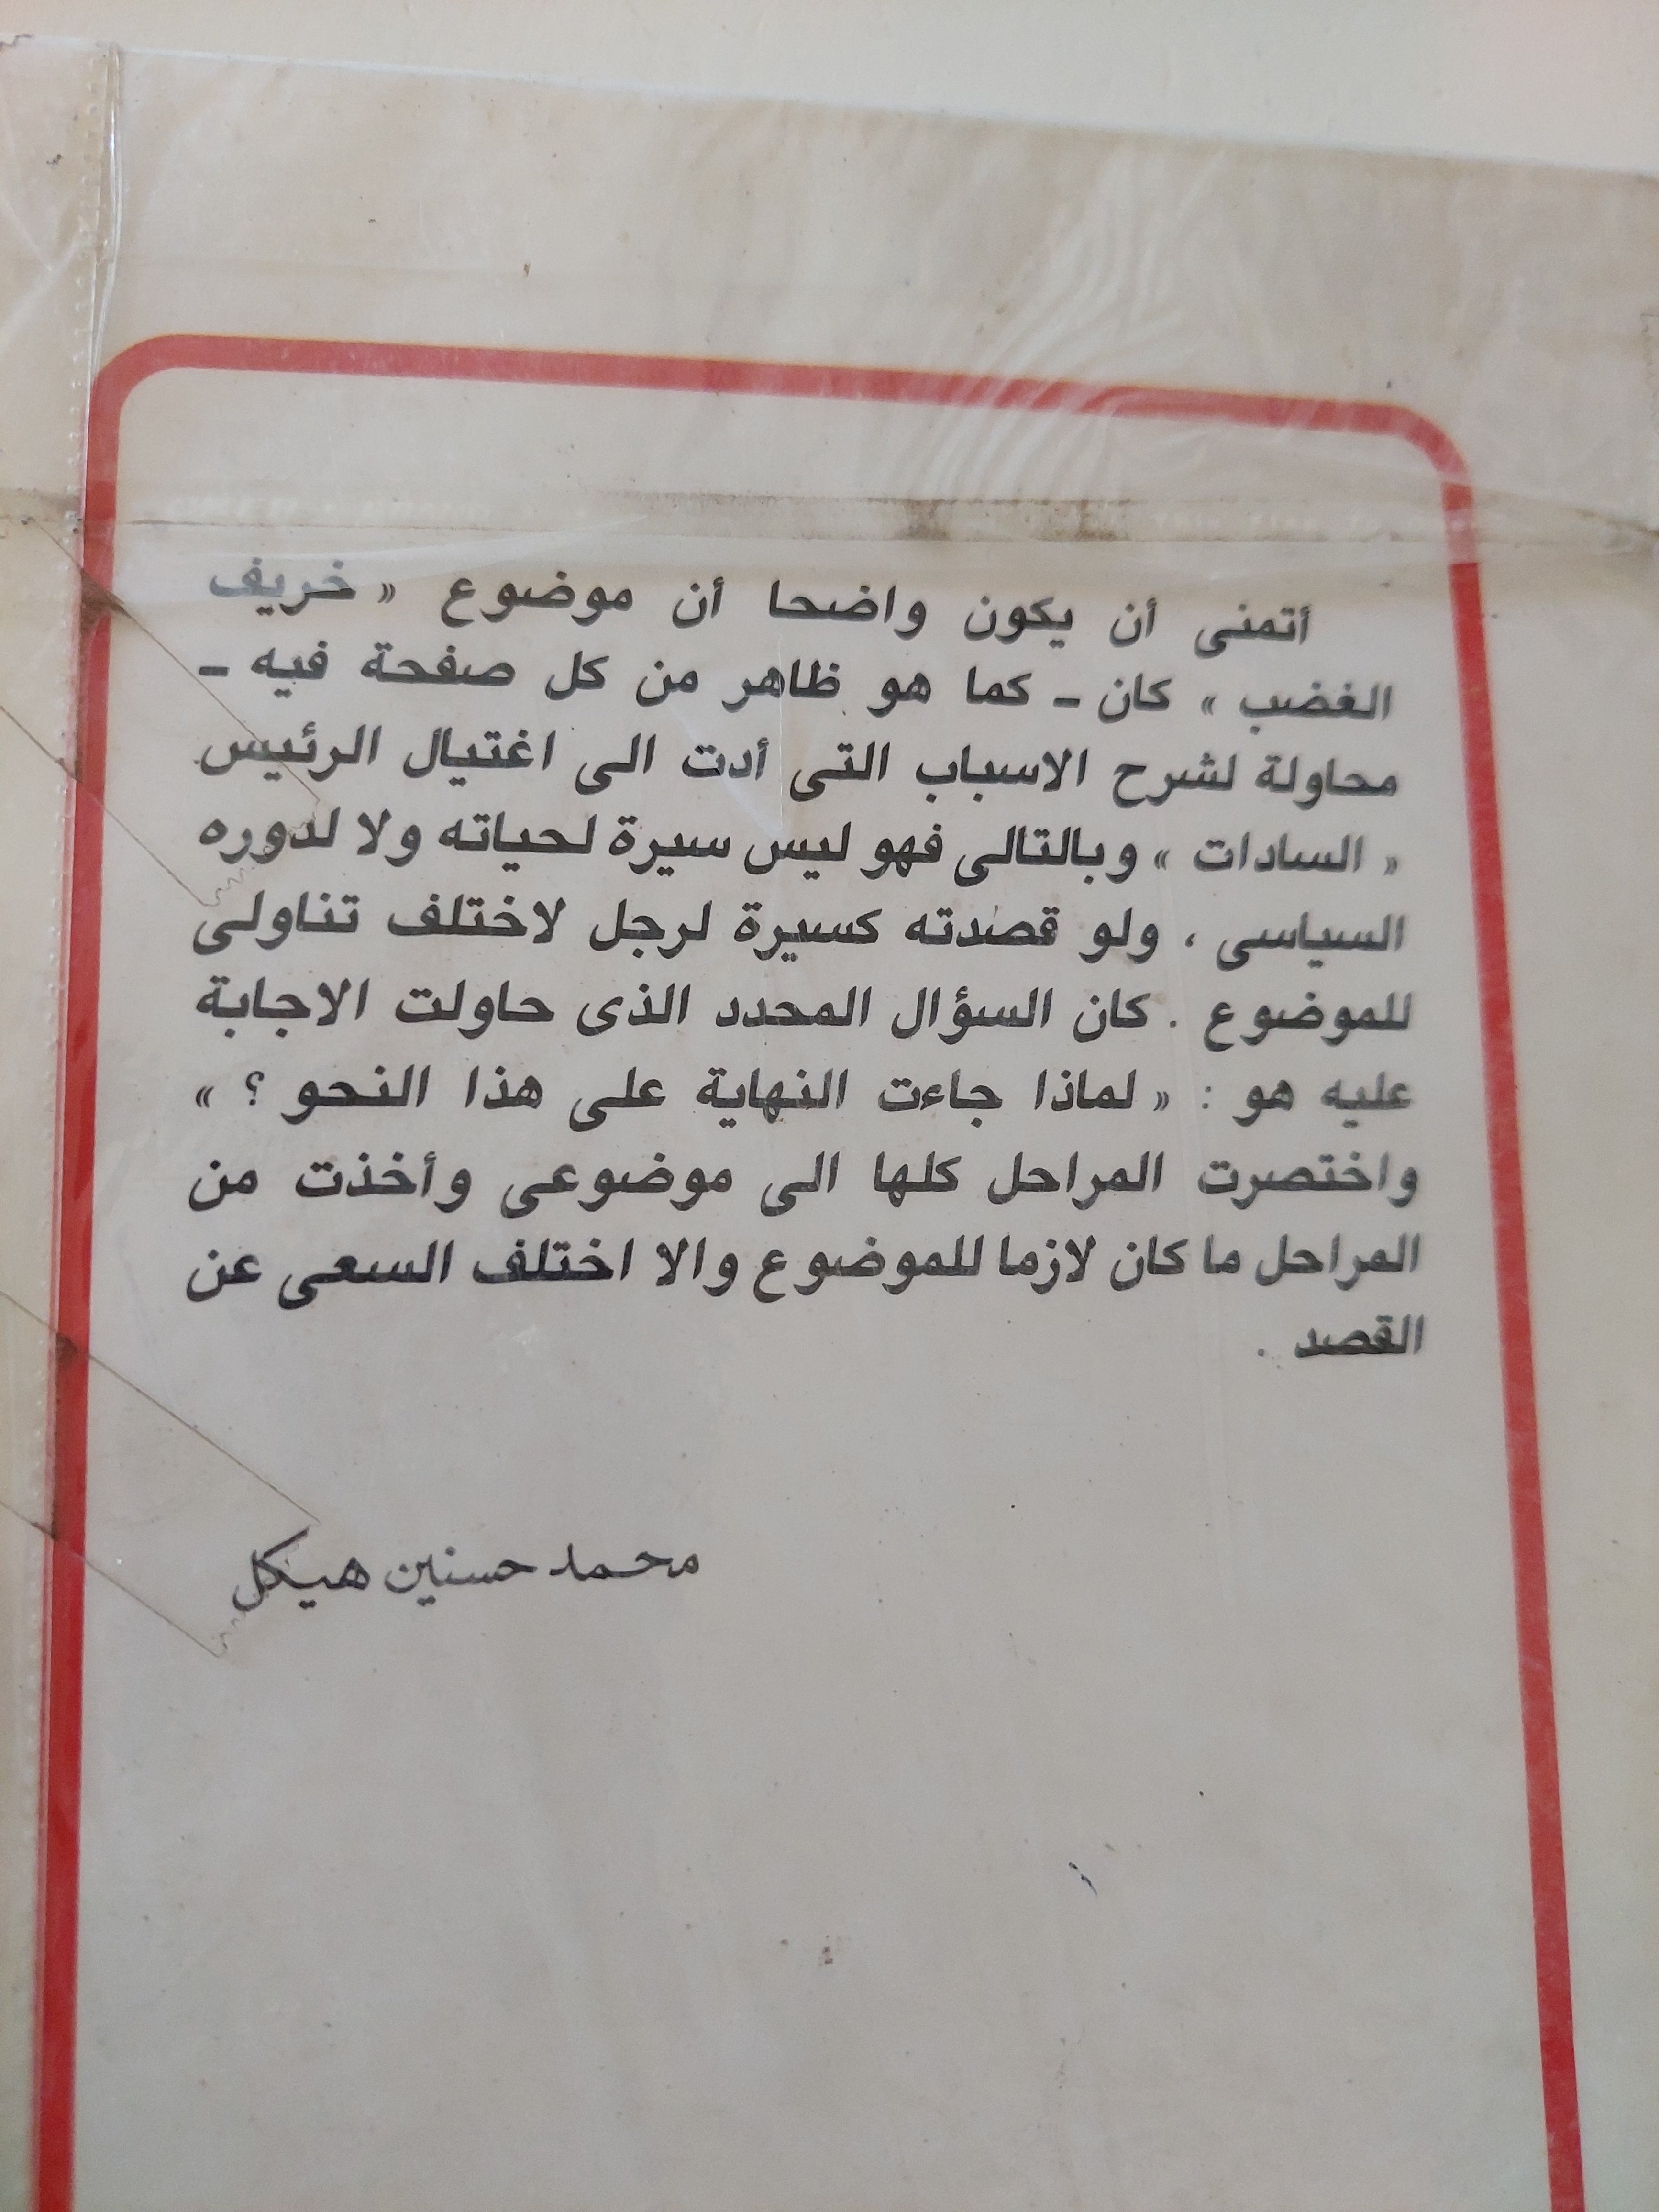 أتمنى أن يكون واضحا أن موضوع « خريف
الغضب » كان ـ كما هو ظاهر من كل صفحة فيه ـ
محاولة لشرح الاسباب التى أدت الى اغتيال الرئيس
« السادات » وبالتالى فهو ليس سيرة لحياته ولا لدوره
السياسى ، ولو قصدته كسيرة لرجل لاختلف تناولى
للموضوع . كان السؤال المحدد الذى حاولت الاجابة
عليه هو : « لماذا جاءت النهاية على هذا النحو ؟ »
واختصرت المراحل كلها الى موضوعى وأخذت من
المراحل ما كان لازما للموضوع والا اختلف السعى عن
القصد .
محمد حسنين هيكل